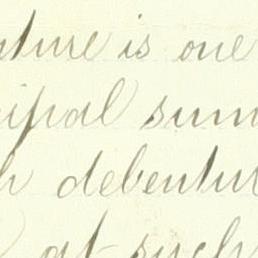 ture is one
cipal sum
h debentur
at such